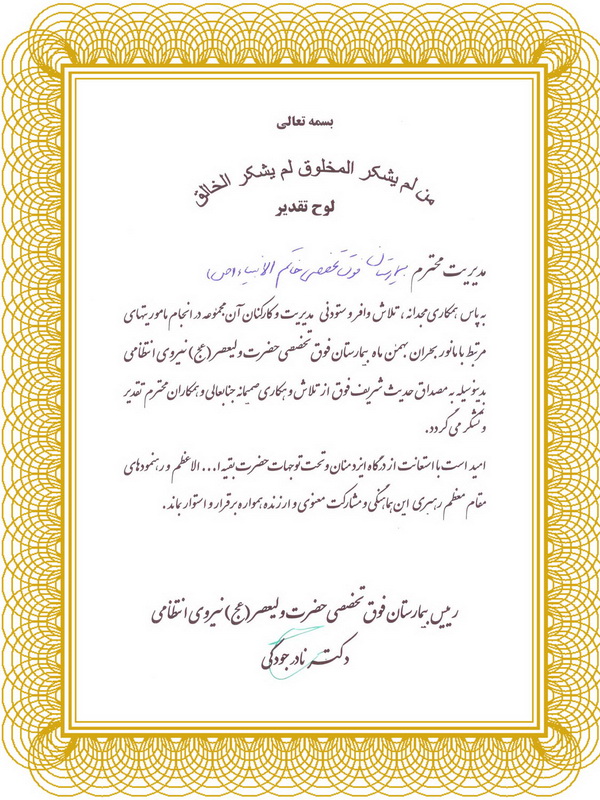 بسمه تعالی
من لم یشکر المخلوق لم یشکر الخالق
لوح تقدیر
مدیریت محترم بیمارستان فوق تخصصی خاتم الانبیاء (ص)
به پاس همکاری مجدانه ، تلاش وافر و ستودنی مدیریت و کارکنان آن مجموعه در انجام ماموریتهای
مرتبط با مانور بحران بهمن ماه بیمارستان فوق تخصصی حضرت ولیعصر (عج) نیروی انتظامی
بدینوسیله به مصداق حدیث شریف فوق از تلاش و همکاری صمیمانه جنابعالی و همکاران محترم تقدیر
و تشکر می گردد.
امید است با استعانت از درگاه ایزد منان و تحت توجهات حضرت بقیه ا... الاعظم و رهنمودهای
مقام معظم رهبری این هماهنگی و مشارکت معنوی و ارزنده همواره برقرار و استوار بماند .
رییس بیمارستان فوق تخصصی حضرت ولیعصر (عج) نیروی انتظامی
دکتر نادر جودگی